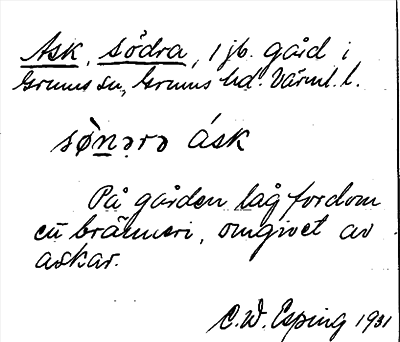 Ask, södra, 1 jb. gård i
Grums sn, Grums hd. Värml. l.
sø̀nərə ásk
På gården låg fordom
ett bränneri, omgivet av
askar.
C.W. Esping 1931